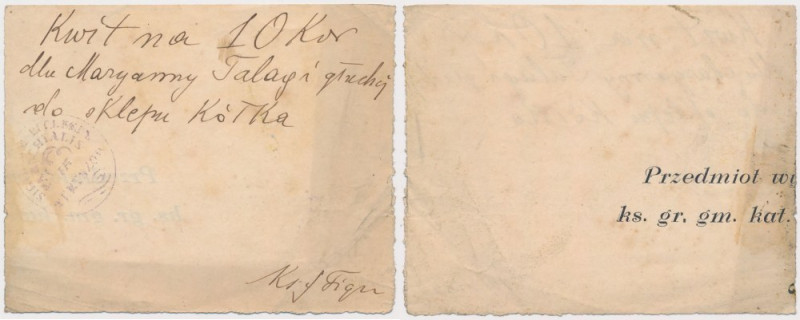 Kwit na 10 Kor
dla Maryanny Talagi głuchej
do sklepu Kółka
Ks J Figu
Przedmiot wy
ks. gr. gm. kat.